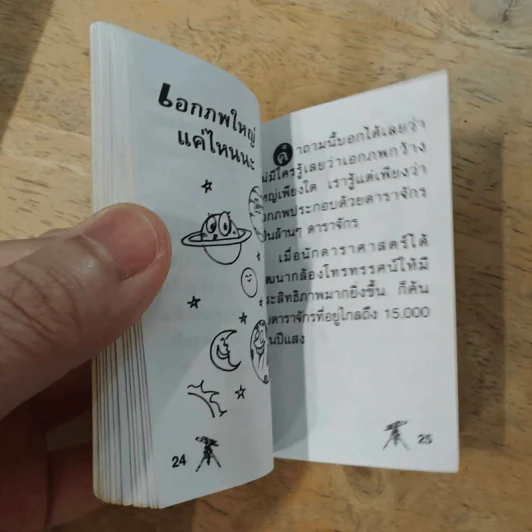 เอกภพใหญ่
แค่ไหนนะ
24
คำถามนี้บอกได้เลยว่า
ม่มีใครรู้เลยว่าเอกภพกว้าง
หญ่เพียงใด เรารู้แต่เพียงว่า
อกภพประกอบด้วยดาราจักร
ป็นล้านๆ ดาราจักร
เมื่อนักดาราศาสตร์ได้
ฒนากล้องโทรทรรศน์ให้มี
ระสิทธิภาพมากยิ่งขึ้น ก็ค้น
บดาราจักรที่อยู่ไกลถึง 15,000
นปีแสง
25